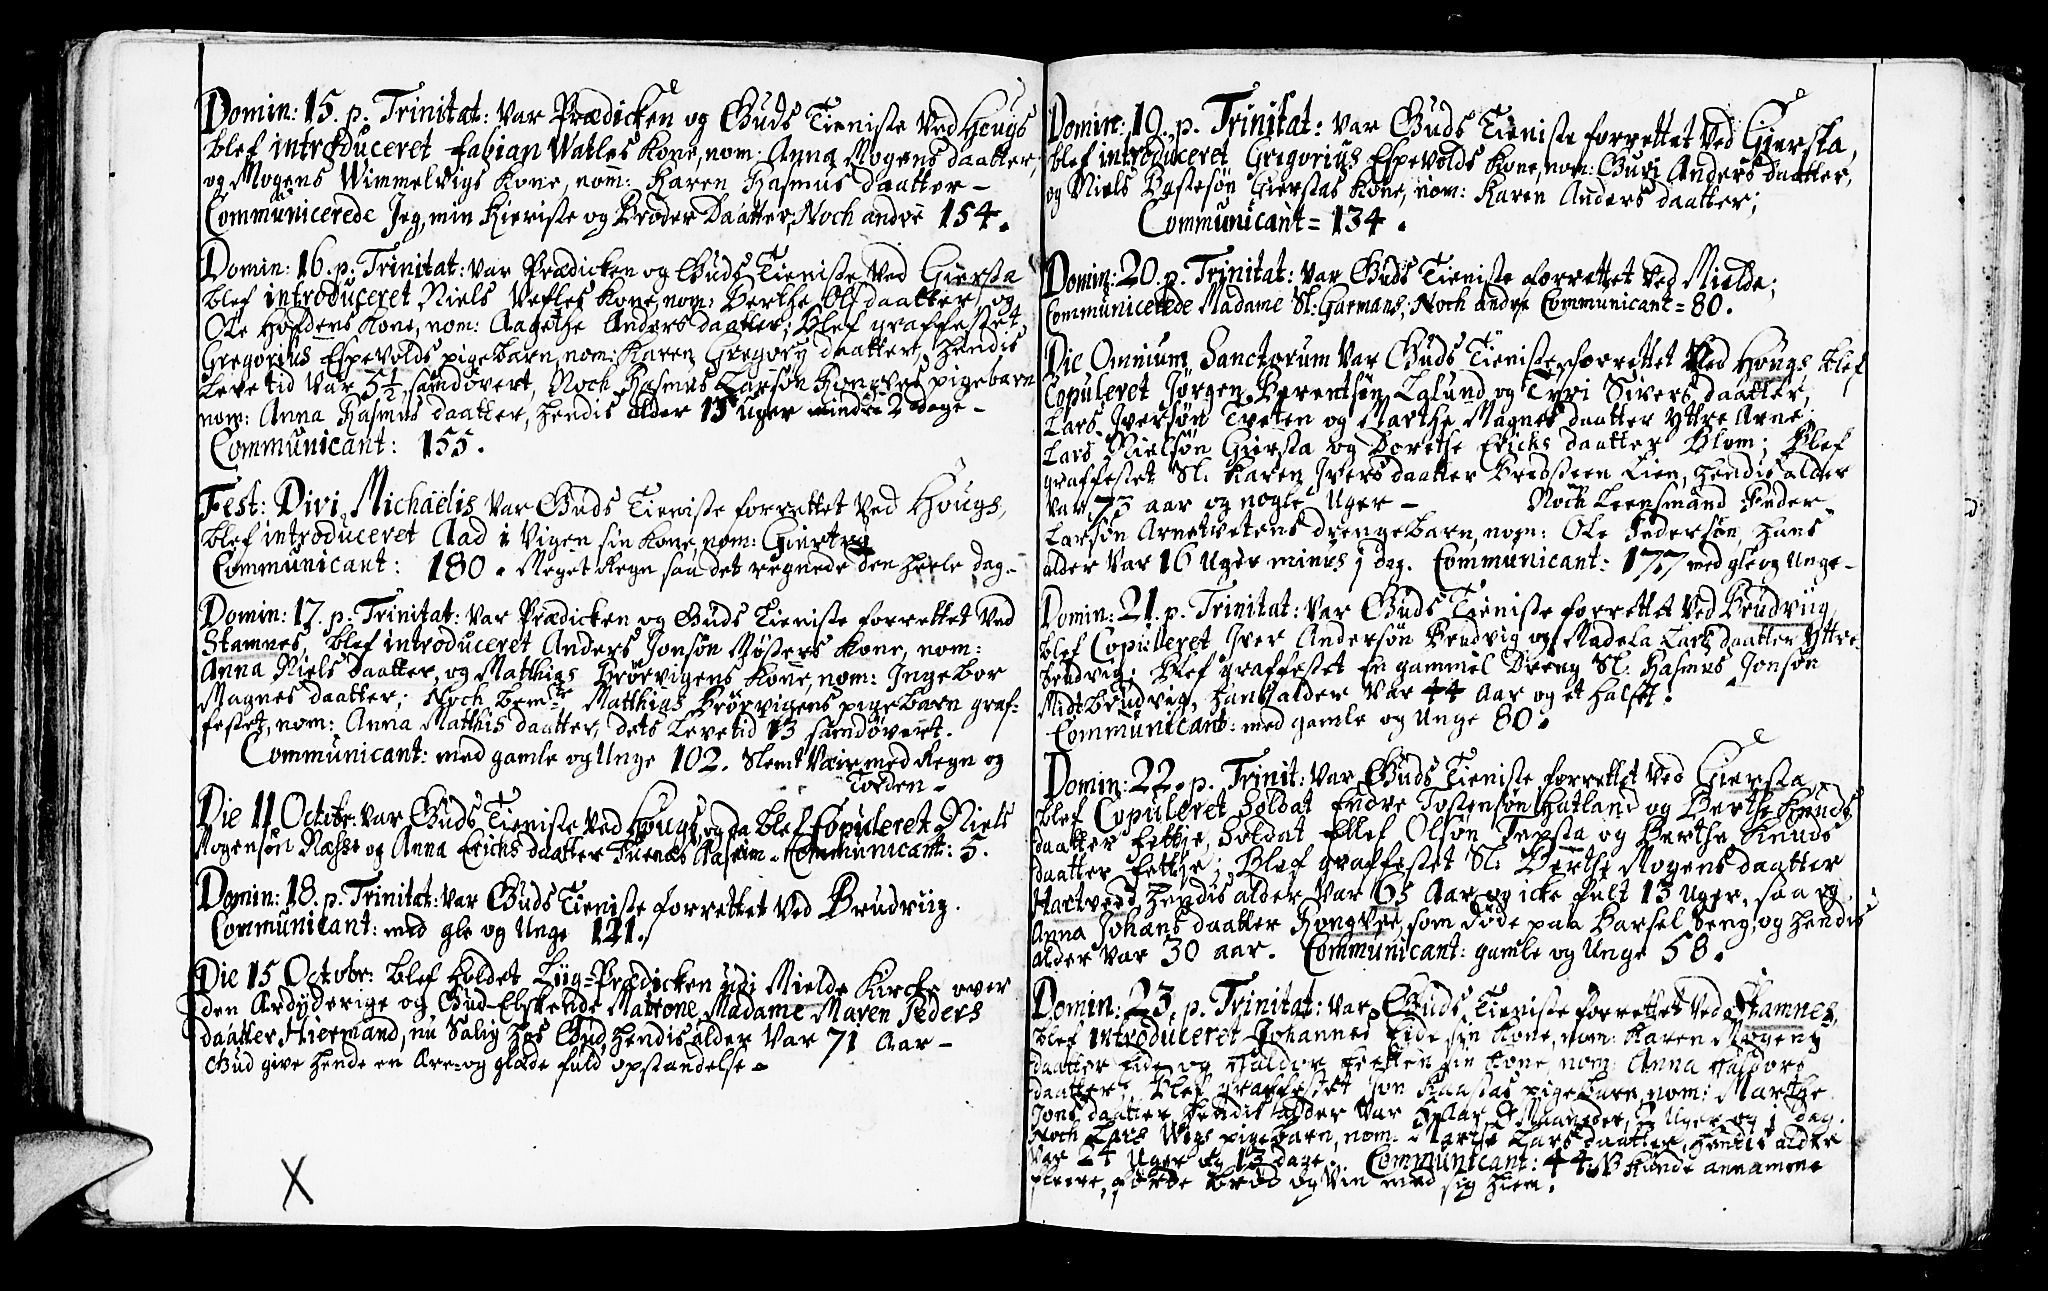 Domin: 15. p. Trinitat: var Prædicken og Guds Tieniste ved Hougs
blef introduceret Fabian Watles Kone, nom: Anna Mogens daatter,
og Mogens Wimmelvigs Kone, nom: Karen Rasmus daatter –
Communicerede Jeg, min Kieriste og Broder Daatter, Noch andre 154.
Domin: 16. p. Trinitat: var Prædicken og Guds Tieniste ved Giersta
blef introduceret Niels Vefles Kone, nom: Berthe Olsdaatter, og
Ole Hofdens Kone, nom: Aagethe Anders daatter; Blef graffestet
Gregorius Espevolds pigebarn, nom: Karen Gregory daatter, hendis
Levetid var 5½ samdøvert, Noch Rasmus Larsøn pigebarn
nom: Anna Rasmus daatter, hendis alder 13 Uger mindre 2 dage –
Communicant: 155.
Fest: Divi Michaëlis var Guds Tieniste forrettet ved Hougs,
blef introduceret Aad i Vigen sin Kone, nom: Giertry
Communicant: 180. Meget Regn saa det regnede den heele dag –
Domin: 17. p. Trinitat: var Prædicken og Guds Tieniste forrettet ved
Stamnes, blef introduceret Anders Jonsøn Kone, nom:
Anna Niels daatter, og Matthias Brørvigens Kone, nom: Ingebor
Magnes daatter; Noch bemte Matthias Brørvigens pigebarn graf=
festet, nom: Anna Mathis daatter, dets Levetid 13 samdøvert.
Communicant: med gamle og Unge 102. Slemt Væir med Regn og
Torden –
Die 11 Octobr: var Guds Tieniste ved Hougs, og da blef Copuleret Niels
Mogensøn Næsse og Anna Erichs daatter Communicant: 5.
Domin: 18. p. Trinitat: var Guds Tieniste forrettet ved Brudviig.
Communicant: med gle og Unge 121.
Die 15 Octobr: blef holdet Liig=Prædicken udi Mielde Kirche over
den Ærdyderige og Gud-Elskende Matrone Madame Maren Peders
daatter Hiermand, nu Salig hos Gud, hendis alder var 71 Aar –
Gud give hende en Ære- og glæde fuld opstandelse –
X
Domin: 19. p. Trinitat: var Guds Tieniste forrettet ved Giersta,
blef introduceret Gregorius Espevolds Kone, nom: Guri Anders daatter,
og Niels Bastesøn Gierstas Kone, nom: Karen Anders daatter;
Communicant = 134.
Domin: 20. p. Trinitat: var Guds Tieniste forrettet ved Mielde;
Communicerede Madame Sl: Garmans; Noch andre Communicant = 80.
Die Omnium Sanctorum var Guds Tieniste forrettet ved Hougs blef
Copuleret Jørgen Berentsøn Lalund og Tyri Sivers daatter,
Lars Iversøn Tveten og Marthe Magnes daatter Yttre Arne,
Lars Nielsøn Giersta og Dorethe Erichs daatter Blom; Blef
graffestet Sl: Karen Ivers daatter Bredsteen Lien, hendis alder
var 73 aar og nogle Uger – Noch Leensmand Peder
Larsøn Arnetvetens drengebarn, nom: Ole Pedersøn, hans
alder var 16 Uger minus 1 dag. Communicant: 177 med gle og Unge –
Domin: 21. p. Trinitat: var Guds Tieniste forrettet ved Brudviig,
blef Copuleret Iver Andersøn Brudvig og Madela Lars daatter Yttre
brudvig; Blef graffestet En gammel Dreng Sl: Rasmus Jonsøn
Midtbrudvig, hans alder var 44 Aar og et halft.
Communicant: med gamle og Unge 80.
Domin: 22. p. Trinit: var Guds Tieniste forrettet ved Giersta
blef Copuleret Soldat Endre Tostensøn Hatland og Berthe Knuds
daatter Fettie, Soldat Ellef Olsøn Tepsta og Berthe Knuds
daatter Fettie; Blef graffestet Sl: Berthe Mogens daatter
Hartveed, hendis alder var 65 Aar og icke fult 13 Uger, saa og
Anna Johans daatter Rongvee, som døde paa Barsel Seng, og hendis
alder var 30 aar. Communicant: gamle og Unge 58.
Domin: 23. p. Trinitat: var Guds Tieniste forrettet ved Stamnes,
blef introduceret Johannes Eide sin Kone, nom: Karen Mogens
daatter Eide og Haldor sin Kone, nom: Anna Haldors
daatter; Blef graffestet Jon pigebarn, nom: Marthe
Jons daatter, hendis alder var Aar, Maaneder, 2 Uger og 1 dag.
Noch Lars Wigs pigebarn, nom: Marthe Lars daatter, hendis alder
var 24 Uger og 13 dage. Communicant: 44. NB kunde annamme
fleere, førde brød og Vin med sig hiem.